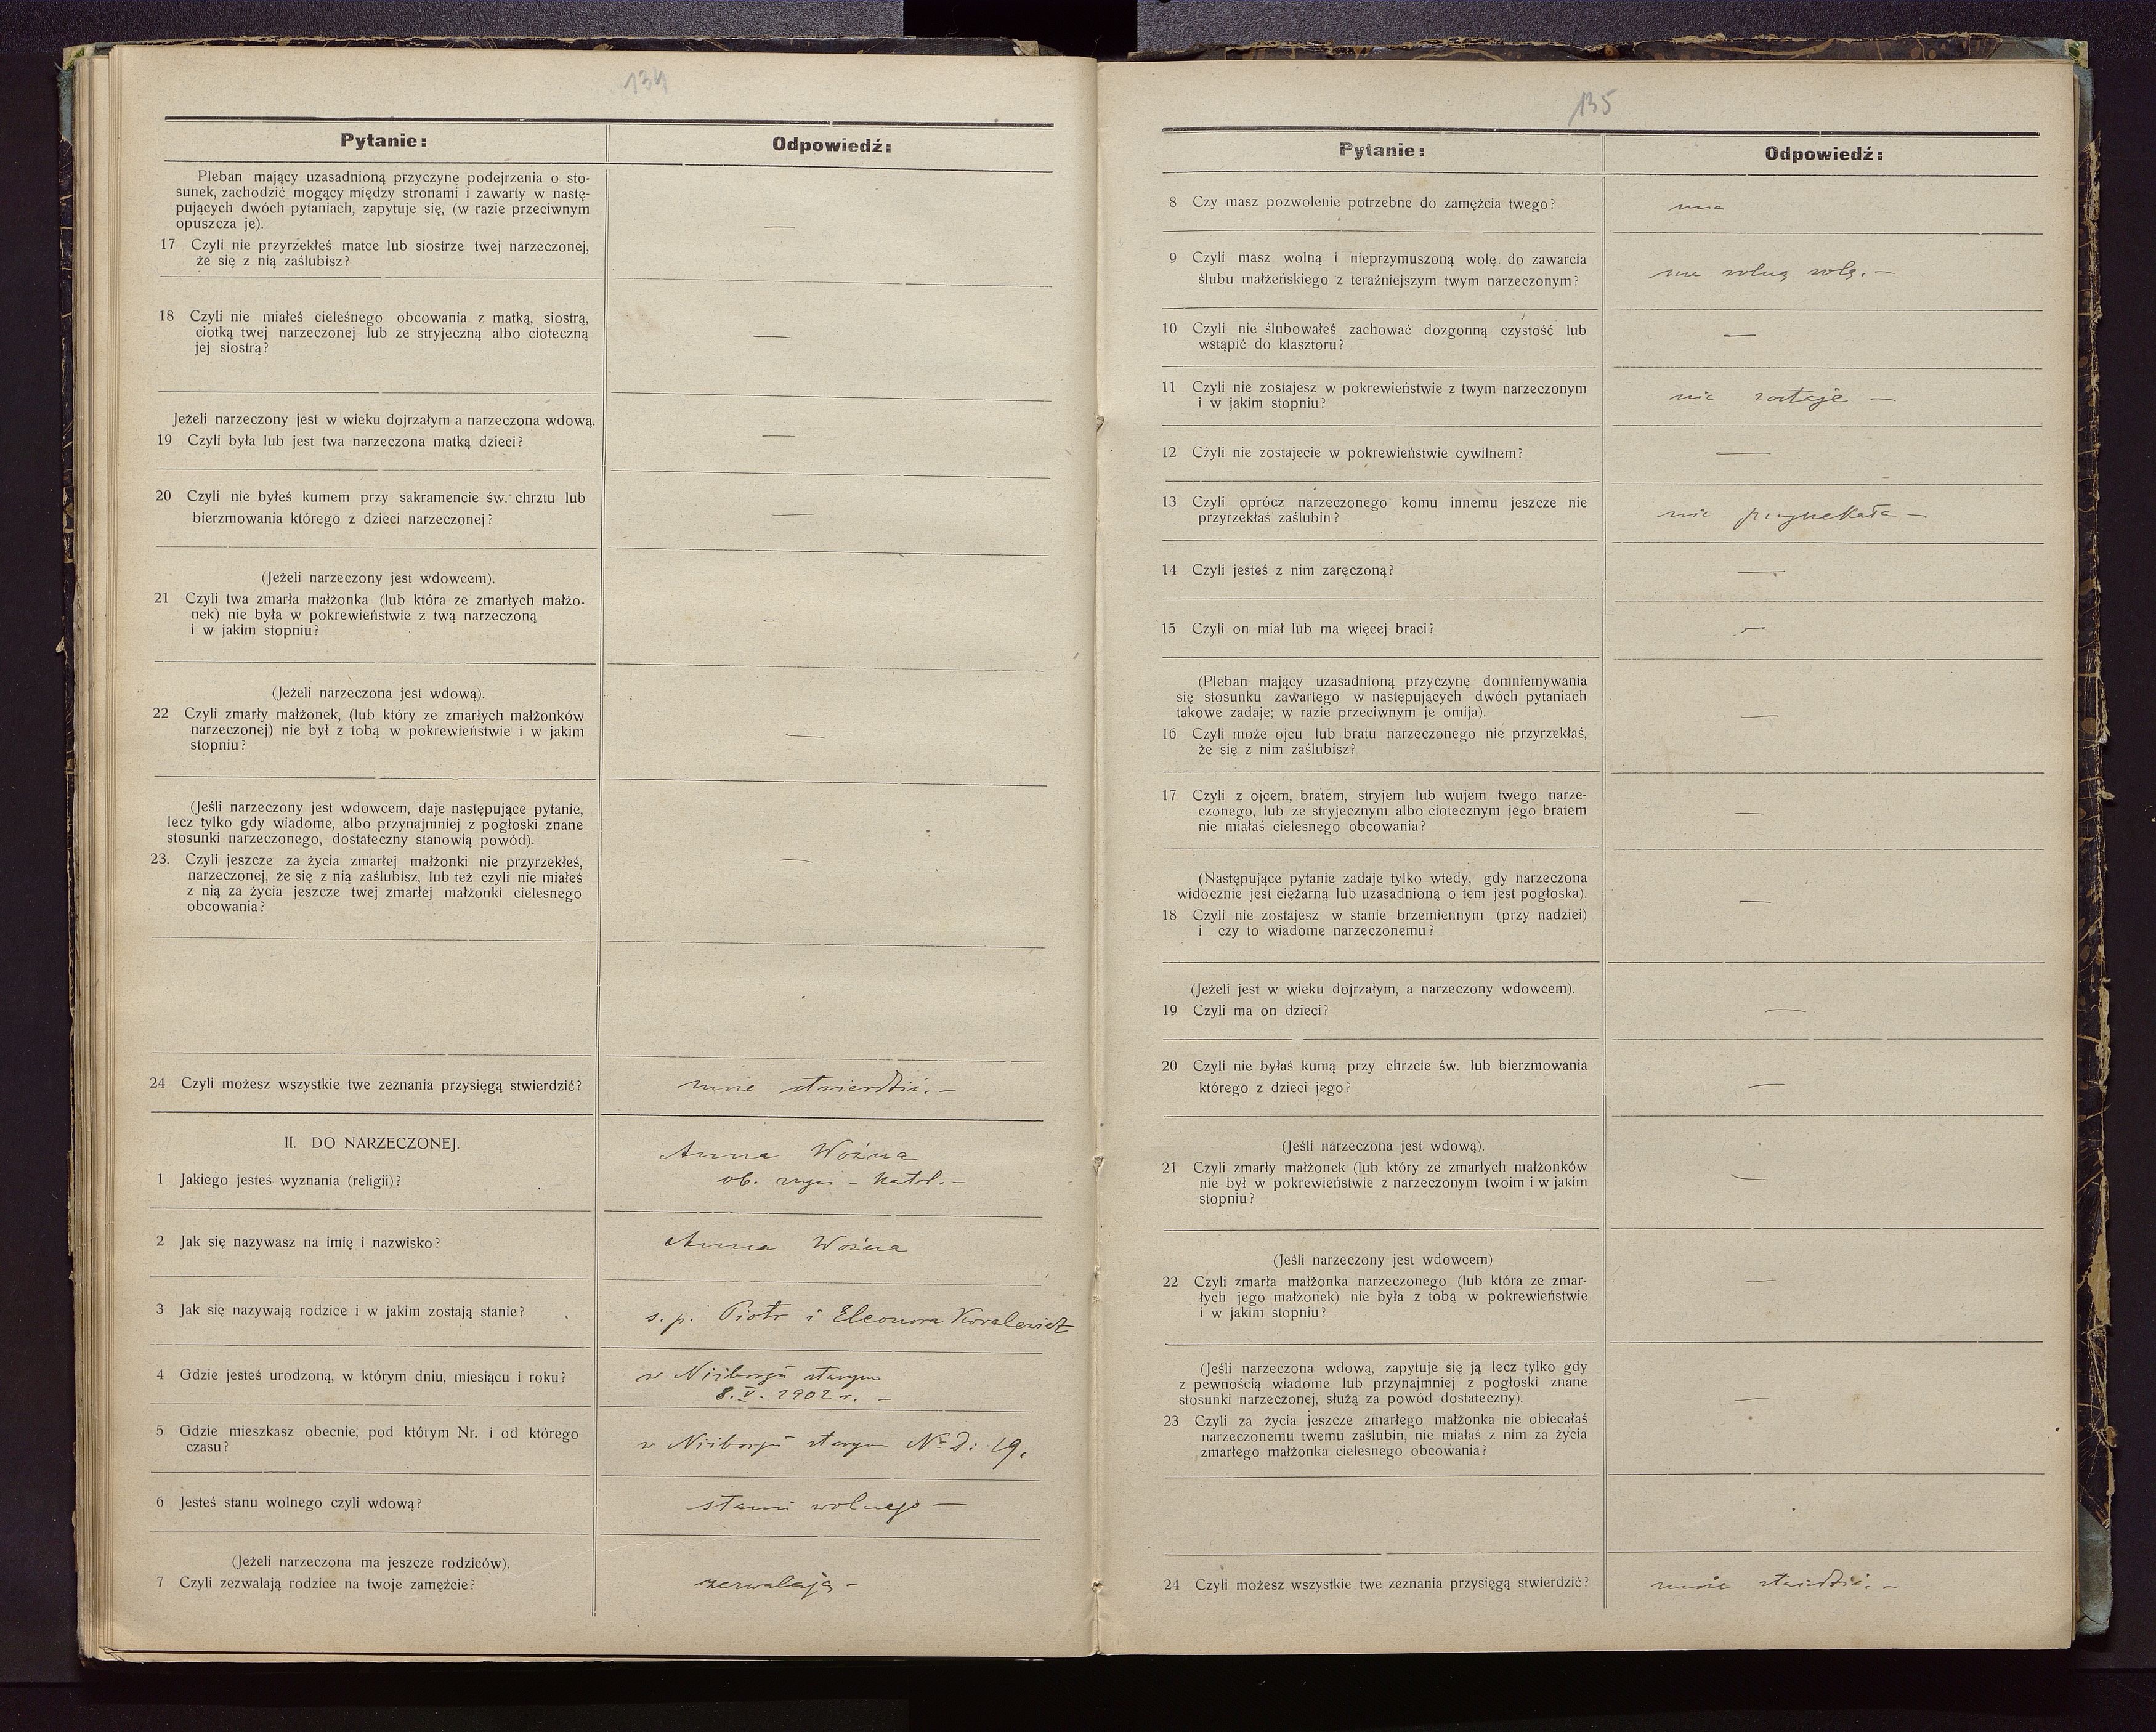 134
Pytanie:
Odpowiedź:
Pleban mający uzasadnioną przyczynę podejrzenia o sto-
sunek, zachodzić mogący między stronami i zawarty w nastę-
pujących dwóch pytaniach, zapytuje się, (w razie przeciwnym
opuszcza je).
17 Czyli nie przyrzekłeś matce lub siostrze twej narzeczonej,
że się z nią zaślubisz?
—
18 Czyli nie miałeś cieleśnego obcowania z matką, siostrą,
ciotką twej narzeczonej lub ze stryjeczną albo cioteczną
jej siostrą?
—
Jeżeli narzeczony jest w wieku dojrzałym a narzeczona wdową.
19 Czyli była lub jest twa narzeczona matką dzieci?
—
20 Czyli nie byłeś kumem przy sakramencie św. chrztu lub
bierzmowania którego z dzieci narzeczonej?
—
(Jeżeli narzeczony jest wdowcem).
21 Czyli twa zmarła małżonka (lub która ze zmarłych małżo-
nek) nie była w pokrewieństwie z twą narzeczoną
i w jakim stopniu?
—
(Jeżeli narzeczona jest wdową).
22 Czyli zmarły małżonek, (lub który ze zmarłych małżonków
narzeczonej) nie był z tobą w pokrewieństwie i w jakim
stopniu?
—
(Jeśli narzeczony jest wdowcem, daje następujące pytanie,
lecz tylko gdy wiadome, albo przynajmniej z pogłoski znane
stosunki narzeczonego, dostateczny stanowią powód).
23. Czyli jeszcze za życia zmarłej małżonki nie przyrzekłeś,
narzeczonej, że się z nią zaślubisz, lub też czyli nie miałeś
z nią za życia jeszcze twej zmarłej małżonki cielesnego
obcowania?
—
24 Czyli możesz wszystkie twe zeznania przysięgą stwierdzić?
może stwierdzić. —
II. DO NARZECZONEJ.
Anna Woźna
1 Jakiego jesteś wyznania (religii)?
ob. rzym - katol. —
2 Jak się nazywasz na imię i nazwisko?
Anna Woźna
3 Jak się nazywają rodzice i w jakim zostają stanie?
s. p. Piotr i Eleonora
4 Gdzie jesteś urodzoną, w którym dniu, miesiącu i roku?
w Niżborgu starym
8. V. 1902 r. —
5 Gdzie mieszkasz obecnie, pod którym Nr. i od którego
czasu?
w Niżborgu starym No D: 19.
6 Jesteś stanu wolnego czyli wdową?
stanu wolnego —
(Jeżeli narzeczona ma jeszcze rodziców).
7 Czyli zezwalają rodzice na twoje zamężcie?
zezwalają —
135
Pytanie:
Odpowiedź:
8 Czy masz pozwolenie potrzebne do zamężcia twego?
ma
9 Czyli masz wolną i nieprzymuszoną wolę do zawarcia
ślubu małżeńskiego z teraźniejszym twym narzeczonym?
ma wolną wolę. —
10 Czyli nie ślubowałeś zachować dozgonną czystość lub
wstąpić do klasztoru?
—
11 Czyli nie zostajesz w pokrewieństwie z twym narzeczonym
i w jakim stopniu?
nie zostaje —
12 Czyli nie zostajecie w pokrewieństwie cywilnem?
—
13 Czyli oprócz narzeczonego komu innemu jeszcze nie
przyrzekłaś zaślubin?
nie przyrzekała —
14 Czyli jesteś z nim zaręczoną?
—
15 Czyli on miał lub ma więcej braci?
—
(Pleban mający uzasadnioną przyczynę domniemywania
się stosunku zawartego w następujących dwóch pytaniach
takowe zadaje; w razie przeciwnym je omija).
16 Czyli może ojcu lub bratu narzeczonego nie przyrzekłaś,
że się z nim zaślubisz?
—
17 Czyli z ojcem, bratem, stryjem lub wujem twego narze-
czonego, lub ze stryjecznym albo ciotecznym jego bratem
nie miałaś cielesnego obcowania?
—
(Następujące pytanie zadaje tylko wtedy, gdy narzeczona
widocznie jest ciężarną lub uzasadnioną o tem jest pogłoska).
18 Czyli nie zostajesz w stanie brzemiennym (przy nadziei)
i czy to wiadome narzeczonemu?
—
(Jeżeli jest w wieku dojrzałym, a narzeczony wdowcem).
19 Czyli ma on dzieci?
—
20 Czyli nie byłaś kumą przy chrzcie św. lub bierzmowania
którego z dzieci jego?
—
(Jeśli narzeczona jest wdową).
21 Czyli zmarły małżonek (lub który ze zmarłych małżonków
nie był w pokrewieństwie z narzeczonym twoim i w jakim
stopniu?
—
(Jeśli narzeczony jest wdowcem)
22 Czyli zmarła małżonka narzeczonego (lub która ze zmar-
łych jego małżonek) nie była z tobą w pokrewieństwie
i w jakim stopniu?
—
(Jeśli narzeczona wdową, zapytuje się ją lecz tylko gdy
z pewnością wiadome lub przynajmniej z pogłoski znane
stosunki narzeczonej, służą za powód dostateczny).
23 Czyli za życia jeszcze zmarłego małżonka nie obiecałaś
narzeczonemu twemu zaślubin, nie miałaś z nim za życia
zmarłego małżonka cielesnego obcowania?
—
24 Czyli możesz wszystkie twe zeznania przysięgą stwierdzić?
może stwierdzić. —